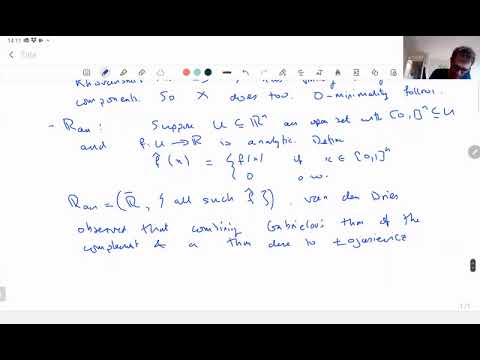 14:11
Title
components. So X does too. O-minimality follows.
- ℝan : Suppose U ⊆ ℝⁿ an open set with [0,1]ⁿ ⊆ U
and f: U → ℝ is analytic. Define
f̂(x) = { f(x) if x ∈ [0,1]ⁿ
0 o.w.
ℝan = (ℝ̄, { all such f̂ }). van den Dries
observed that combining Gabrielov's thm of the
complement & a thm due to Łojasiewicz
1/1